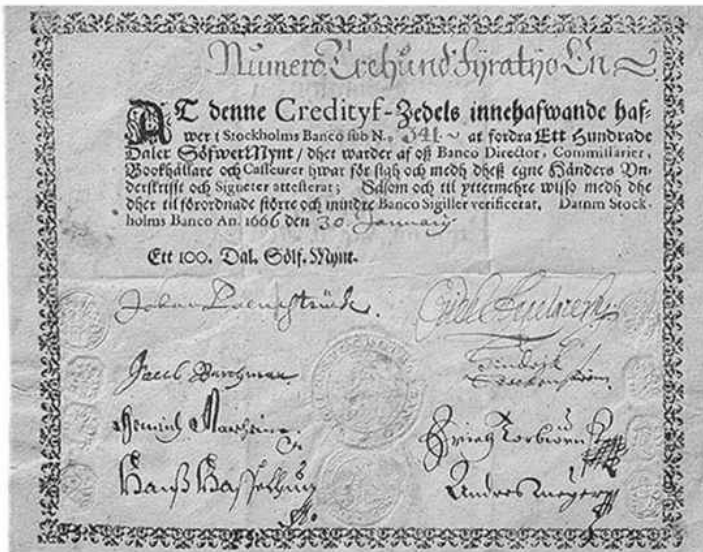 Numero Trehund Fyratijo En
AT denne Credityf-Zedels innehafwande haf-
wer i Stockholms Banco sub N.o 341. ~ at fordra Ett Hundrade
Daler SölfwerMynt / dhet warder af oß Banco Director, Commissarier,
Bookhållare och Casseurer hwar för sigh och medh dheß egne Händers Vn-
derskrifft och Signeter attesterat; Såsom och til yttermehre wisso medh dhe
dher til förordnade större och mindre Banco Sigiller verificerat, Datum Stock-
holms Banco An. 1666 den 30 January
Ett 100. Dal. Sölf. Mynt.
Johan Palmstrück.
Jacob
Hindrich
Hanß
Anders Meijer